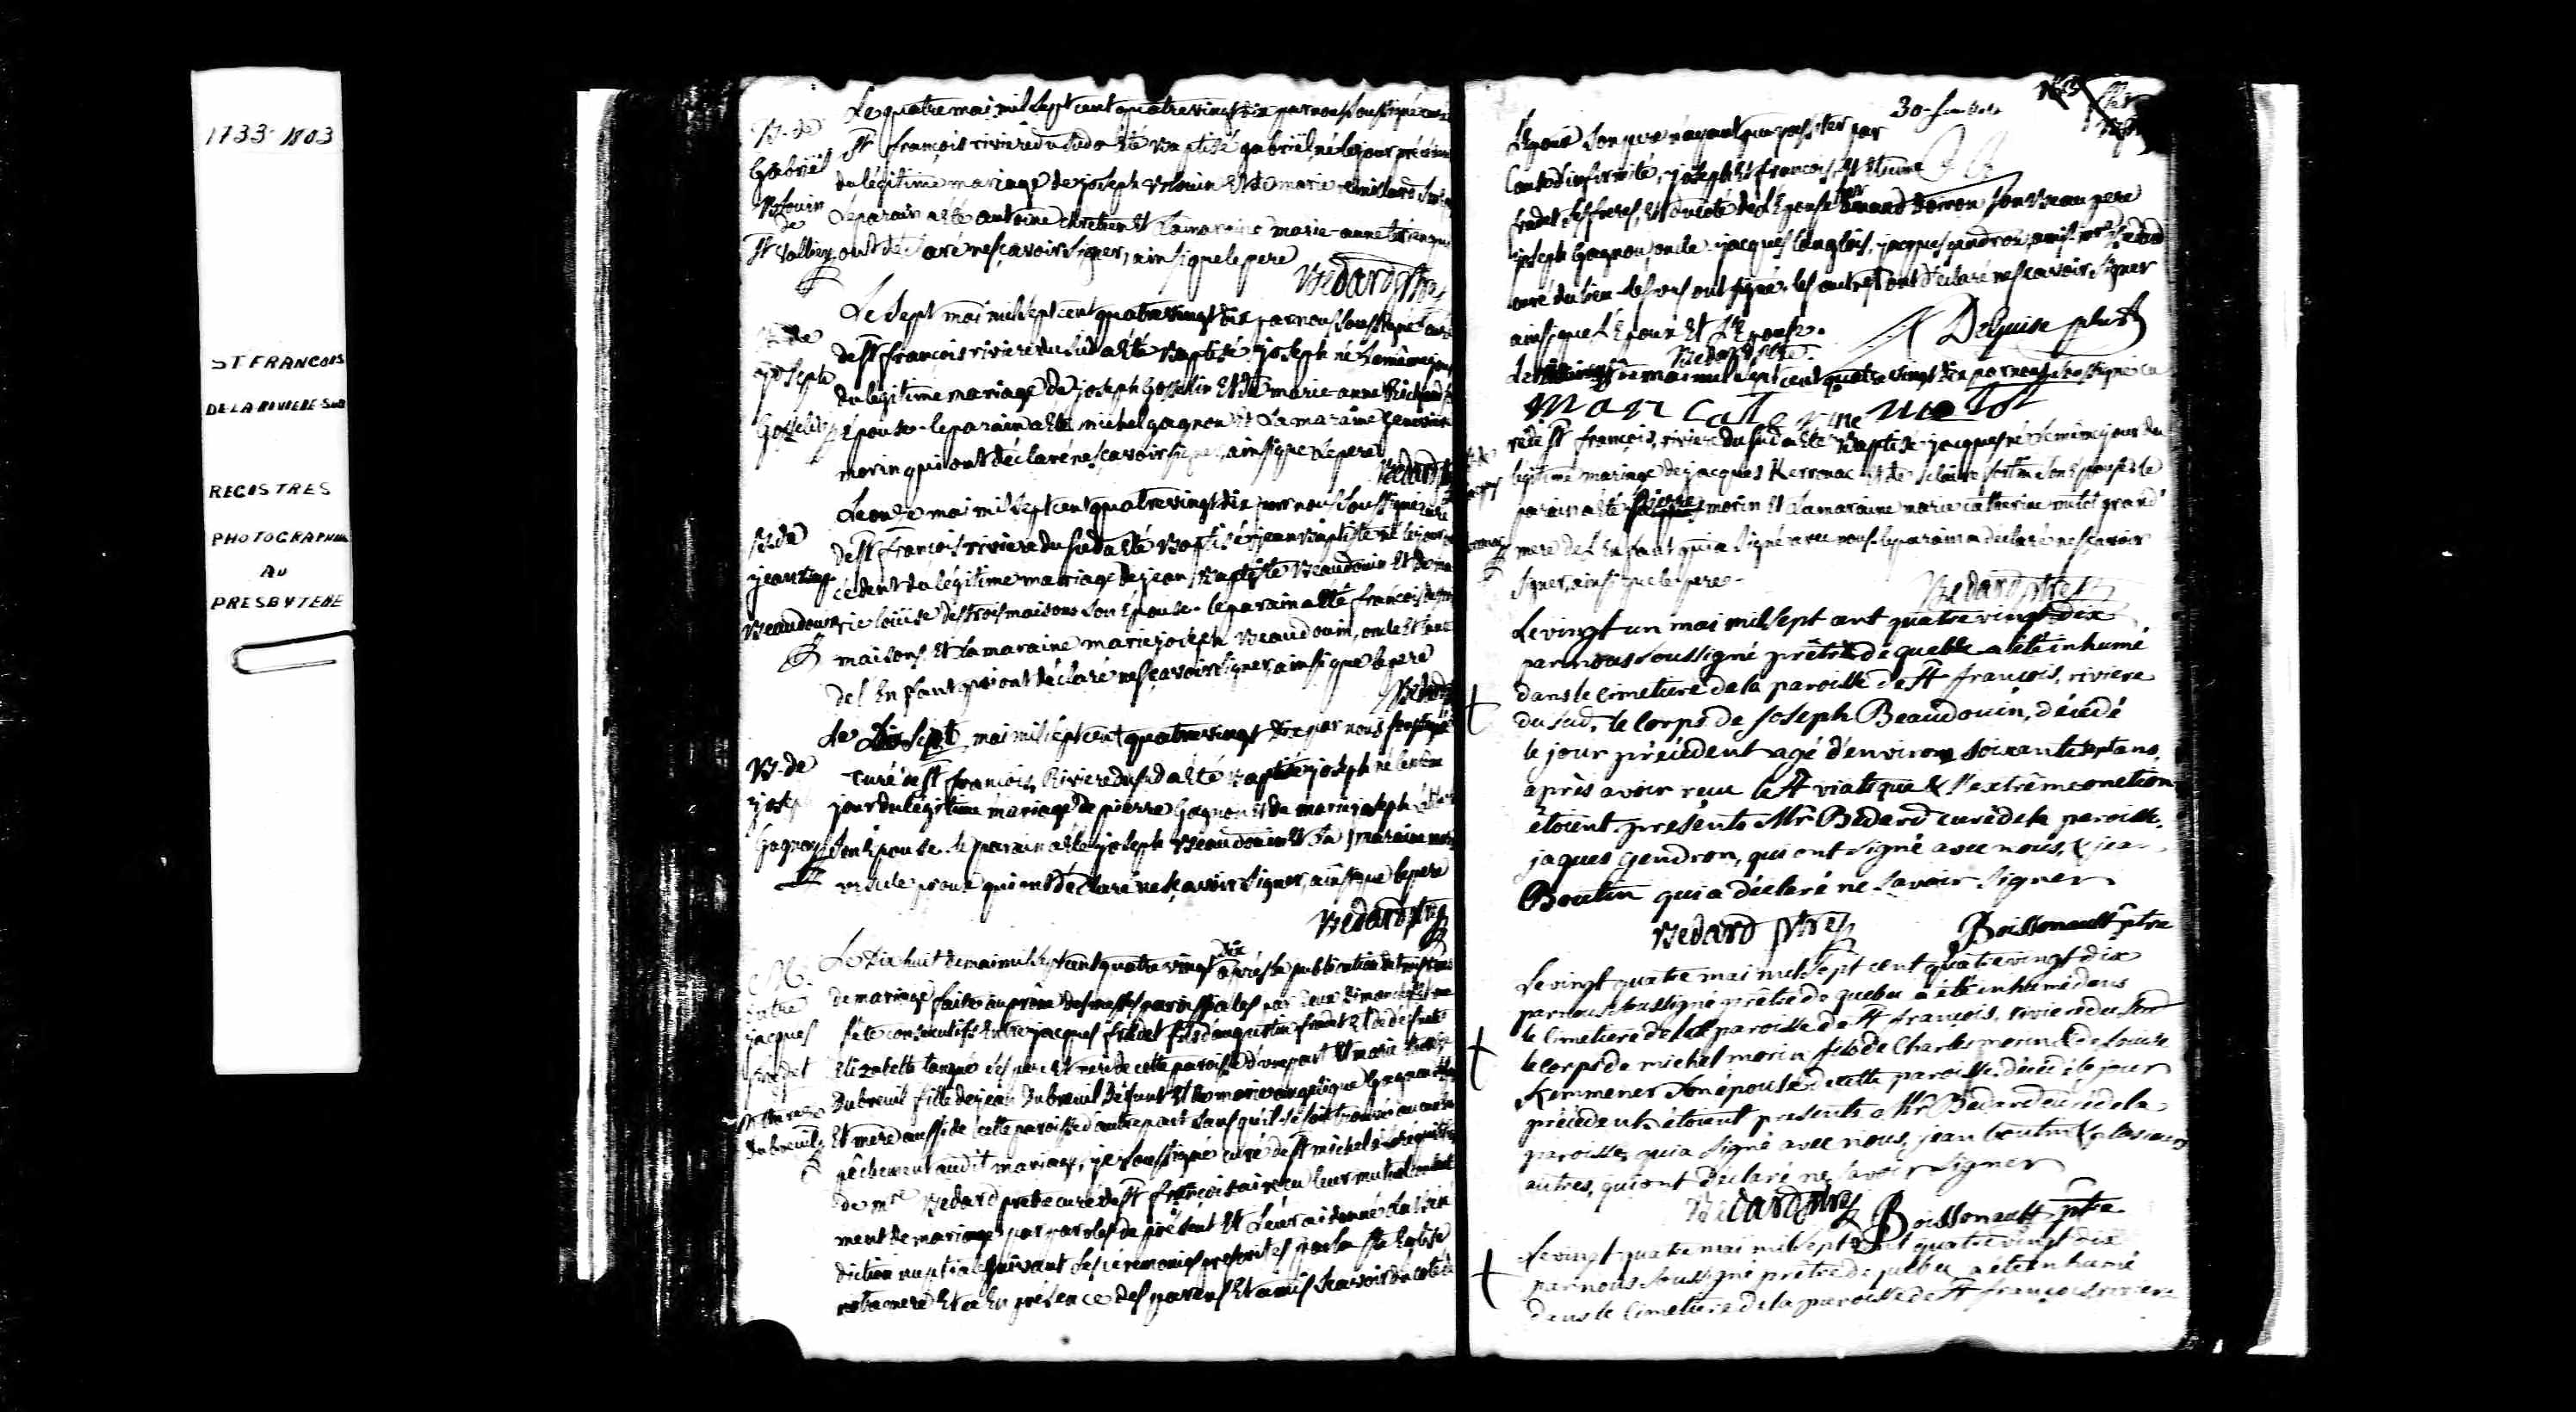 1733-1803
ST FRANCOIS
DE LA RIVIERE-SUD
REGISTRES
PHOTOGRAPHIES
AU
PRESBYTERE
Le quatre mai mil sept cent quatre vingt dix par nous soussigné curé
B. de
Gabriel
Blouin
de
St Vallier
St françois riviere du sud a été baptisé gabriël né le jour
du légitime mariage de joseph blouin et de marie
Le parain a été antoine chretien et la maraine marie-anne
ont déclaré ne sçavoir signer, ainsi que le pere
Bedard ptre
Le sept mai mil sept cent quatre vingt dix par nous soussigné curé
B. de
joseph
Gosselin
de St françois riviere du sud a été baptisé joseph né le même jour
du légitime mariage de joseph Gosselin et de marie anne
épouse. le parain a été michel gagnon et la maraine genevieve
morin qui ont déclaré ne sçavoir signer, ainsi que le pere
Bedard
Le onze mai mil sept cent quatre vingt dix par nous soussigné curé
B. de
jean bap.
Beaudouin
de St françois riviere du sud a été baptisé jean baptiste né le jour
cédent du légitime mariage de jean baptiste Beaudouin et de ma
rie loüise destroismaisons son épouse. le parain a été françois
maisons et la maraine marie joseph Beaudouin, oncle et tante
de l'enfant qui ont déclaré ne sçavoir signer, ainsi que le pere
Bedard
Le Dix sept mai mil sept cent quatre vingt dix par nous soussigné
B. de
joseph
Gagnon
curé de St françois Riviere du sud a été baptisé joseph né le même
jour du légitime mariage de pierre Gagnon et de marie joseph
son épouse. le parain a été joseph Beaudouin et la maraine
ursule qui ont déclaré ne sçavoir signer, ainsi que le pere
Bedard ptre
Le Dix huit de mai mil sept cent quatre vingt dix après la publication de trois bans
M.
entre
jacques
fredet
et
dubreuil
de mariage faite au prône des messes paroissiales par deux dimanches et une
fête consecutifs entre jacques fredet fils d'augustin fredet et de défunte
Elizabeth ses pere et mere de cette paroisse d'une part et marie
Dubreuil fille de jean Dubreuil défunt et de marie angelique Gagnon
et mere aussi de cette paroisse d'autre part sans qu'il se soit trouvé aucun
pêchement audit mariage, je soussigné curé de St michel à la réquisition
de mre Bedard pretre curé de St françois ai reçu leur mutuel consente
ment de mariage par paroles de présent et leur ai donné la béné
diction nuptiale suivant les cérémonies prescrites par la Ste Eglise
notre mere et ce en présence des parens et amis sçavoir du coté de
30
L'époux son pere n'ayant pu assister par
cause d'infirmité, joseph et françois, et
fredet ses freres, et du coté de l'épouse son beau pere
joseph Gagnon oncle. jacques langlois, jacques gendron amis. mre Bedard
curé du lieu. les uns ont signé, les autres ont déclaré ne sçavoir signer
ainsi que L'époux et L'épouse.
Deguise ptre
Bedard ptre
Le mai mil sept cent quatre vingt dix par nous soussigné cu
Mari Caterine
ré de St françois, riviere du sud a été baptisé jacques né le même jour du
légitime mariage de jacques Kerrouac et de son épouse. le
parain a été pierre morin et la maraine marie catherine grand
mere de l'enfant qui a signé avec nous. le parain a déclaré ne sçavoir
signer, ainsi que le pere.
Bedard ptre
Le vingt un mai mil sept cent quatre vingt dix
par nous soussigné prêtre de quebec a été inhumé
dans le cimetiere de la paroisse de St françois, riviere
du sud, le corps de Joseph Beaudouin, décédé
le jour précédent agé d'environ soixante sept ans,
après avoir reçu le St viatique & l'extrême onction
étoient présents Mr Bedard curé de la paroisse,
jaques gendron, qui ont signé avec nous, & jean
Boutin qui a déclaré ne savoir signer
Bedard ptre Boissonault ptre
Le vingt quatre mai mil sept cent quatre vingt dix
par nous soussigné prêtre de quebec a été inhumé dans
le cimetiere de la paroisse de St françois, riviere du sud
le corps de michel morin fils de Charles morin & de Louise
Kemmener son épouse de cette paroisse. décédé le jour
précédent étoient presents Mr Bedard curé de la
paroisse, qui a signé avec nous, jean boutin & plusieurs
autres, qui ont déclaré ne savoir signer
Bedard ptre Boissonault ptre
Le vingt quatre mai mil sept cent quatre vingt dix
par nous soussigné prêtre de quebec a été inhumé
dans le cimetiere de la paroisse de St françois, riviere